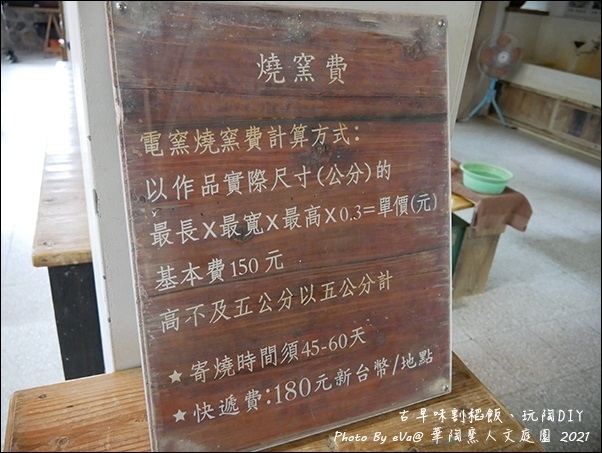 燒窯費
電窯燒窯費計算方式：
以作品實際尺寸(公分)的
最長X最寬X最高X0.3=單價(元)
基本費150元
高不及五公分以五公分計
★寄燒時間須45-60天
★快遞費:180元新台幣/地點
古早味割稻飯、玩陶DIY
Photo By eVa@ 華陶窯人文庭園 2021